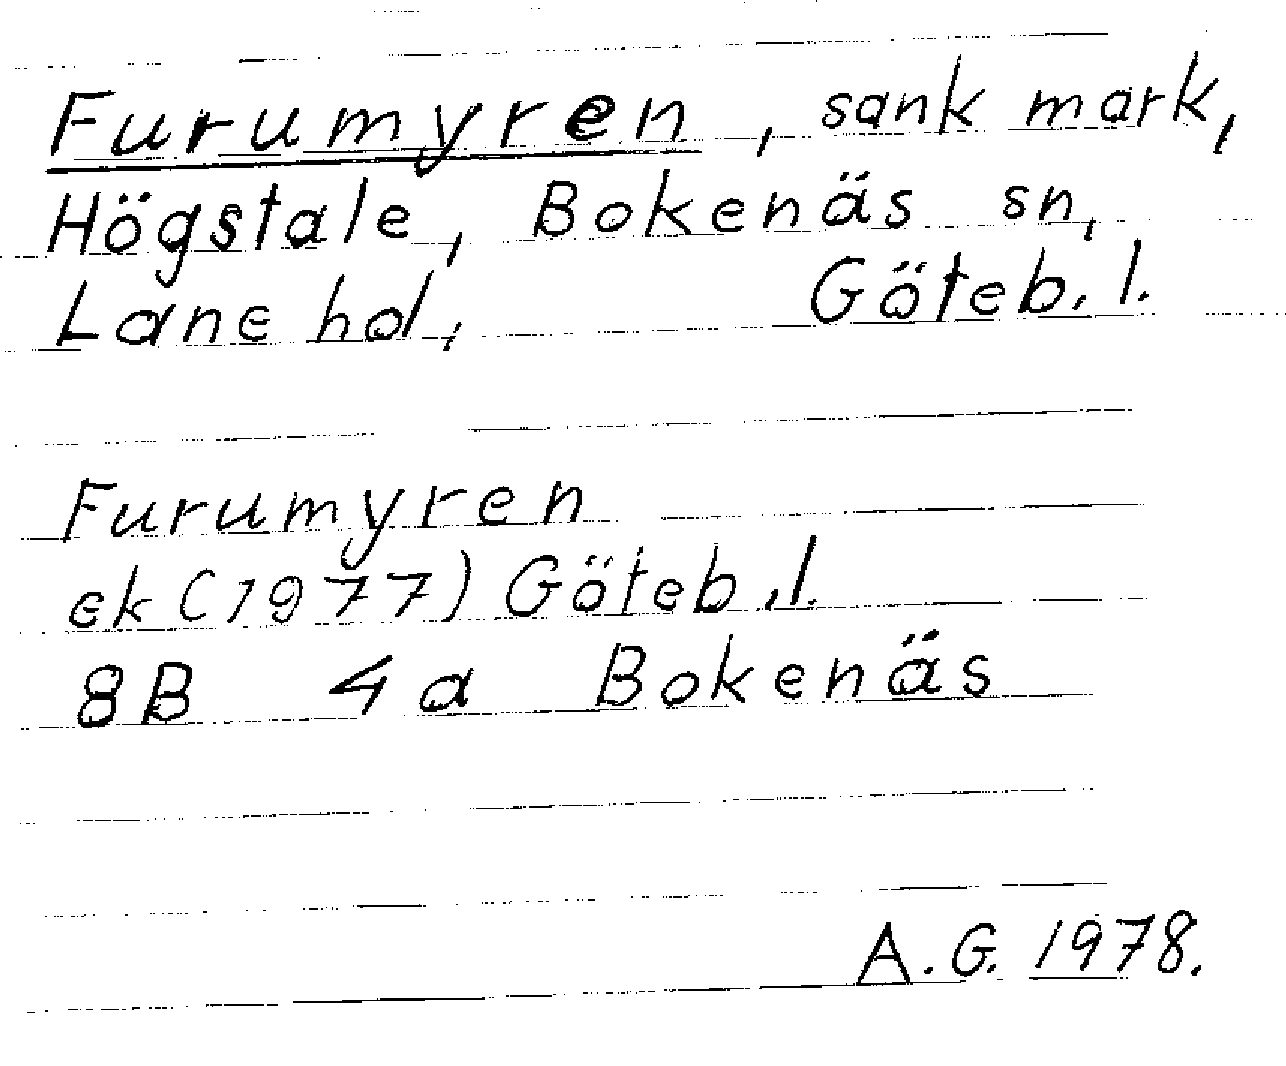 Furumyren, sank mark,
Högstale, Bokenäs sn,
Lane hd, Göteb. l.
Furumyren
ek (1977) Göteb. l.
8B 4a Bokenäs
A. G. 1978.